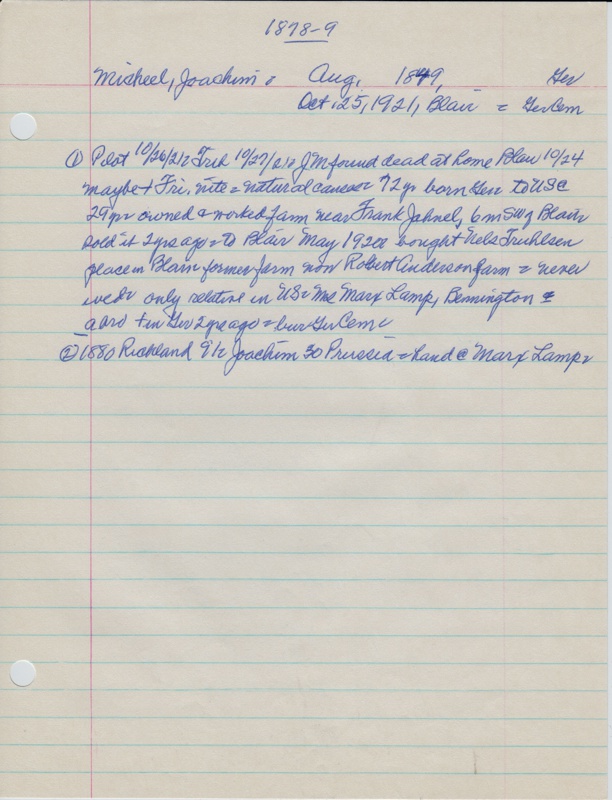 1878-9
Micheel, Joachim = Aug, 1849, Ger
Oct 25, 1921, Blair = Ger Cem
① Pilot 10/26/21 = Trib 10/27/21 = JM found dead at home Blair 10/24
maybe + Fri. nite = natural causes = 72 yr born Ger to US @
29 yr owned & worked farm near Frank Jahnels 6 m SW of Blair
sold it 2 yrs ago = to Blair May 1920 = bought Nels Truhlsen
place in Blair former farm now Robert Anderson farm = never
wed = only relative in US = Marx Lamp, Bennington =
a bro + in Ger 2 yr ago = bur Ger Cem =
② 1880 Richland 91 = Joachim 30 Prussia = hand @ Marx Lamp =